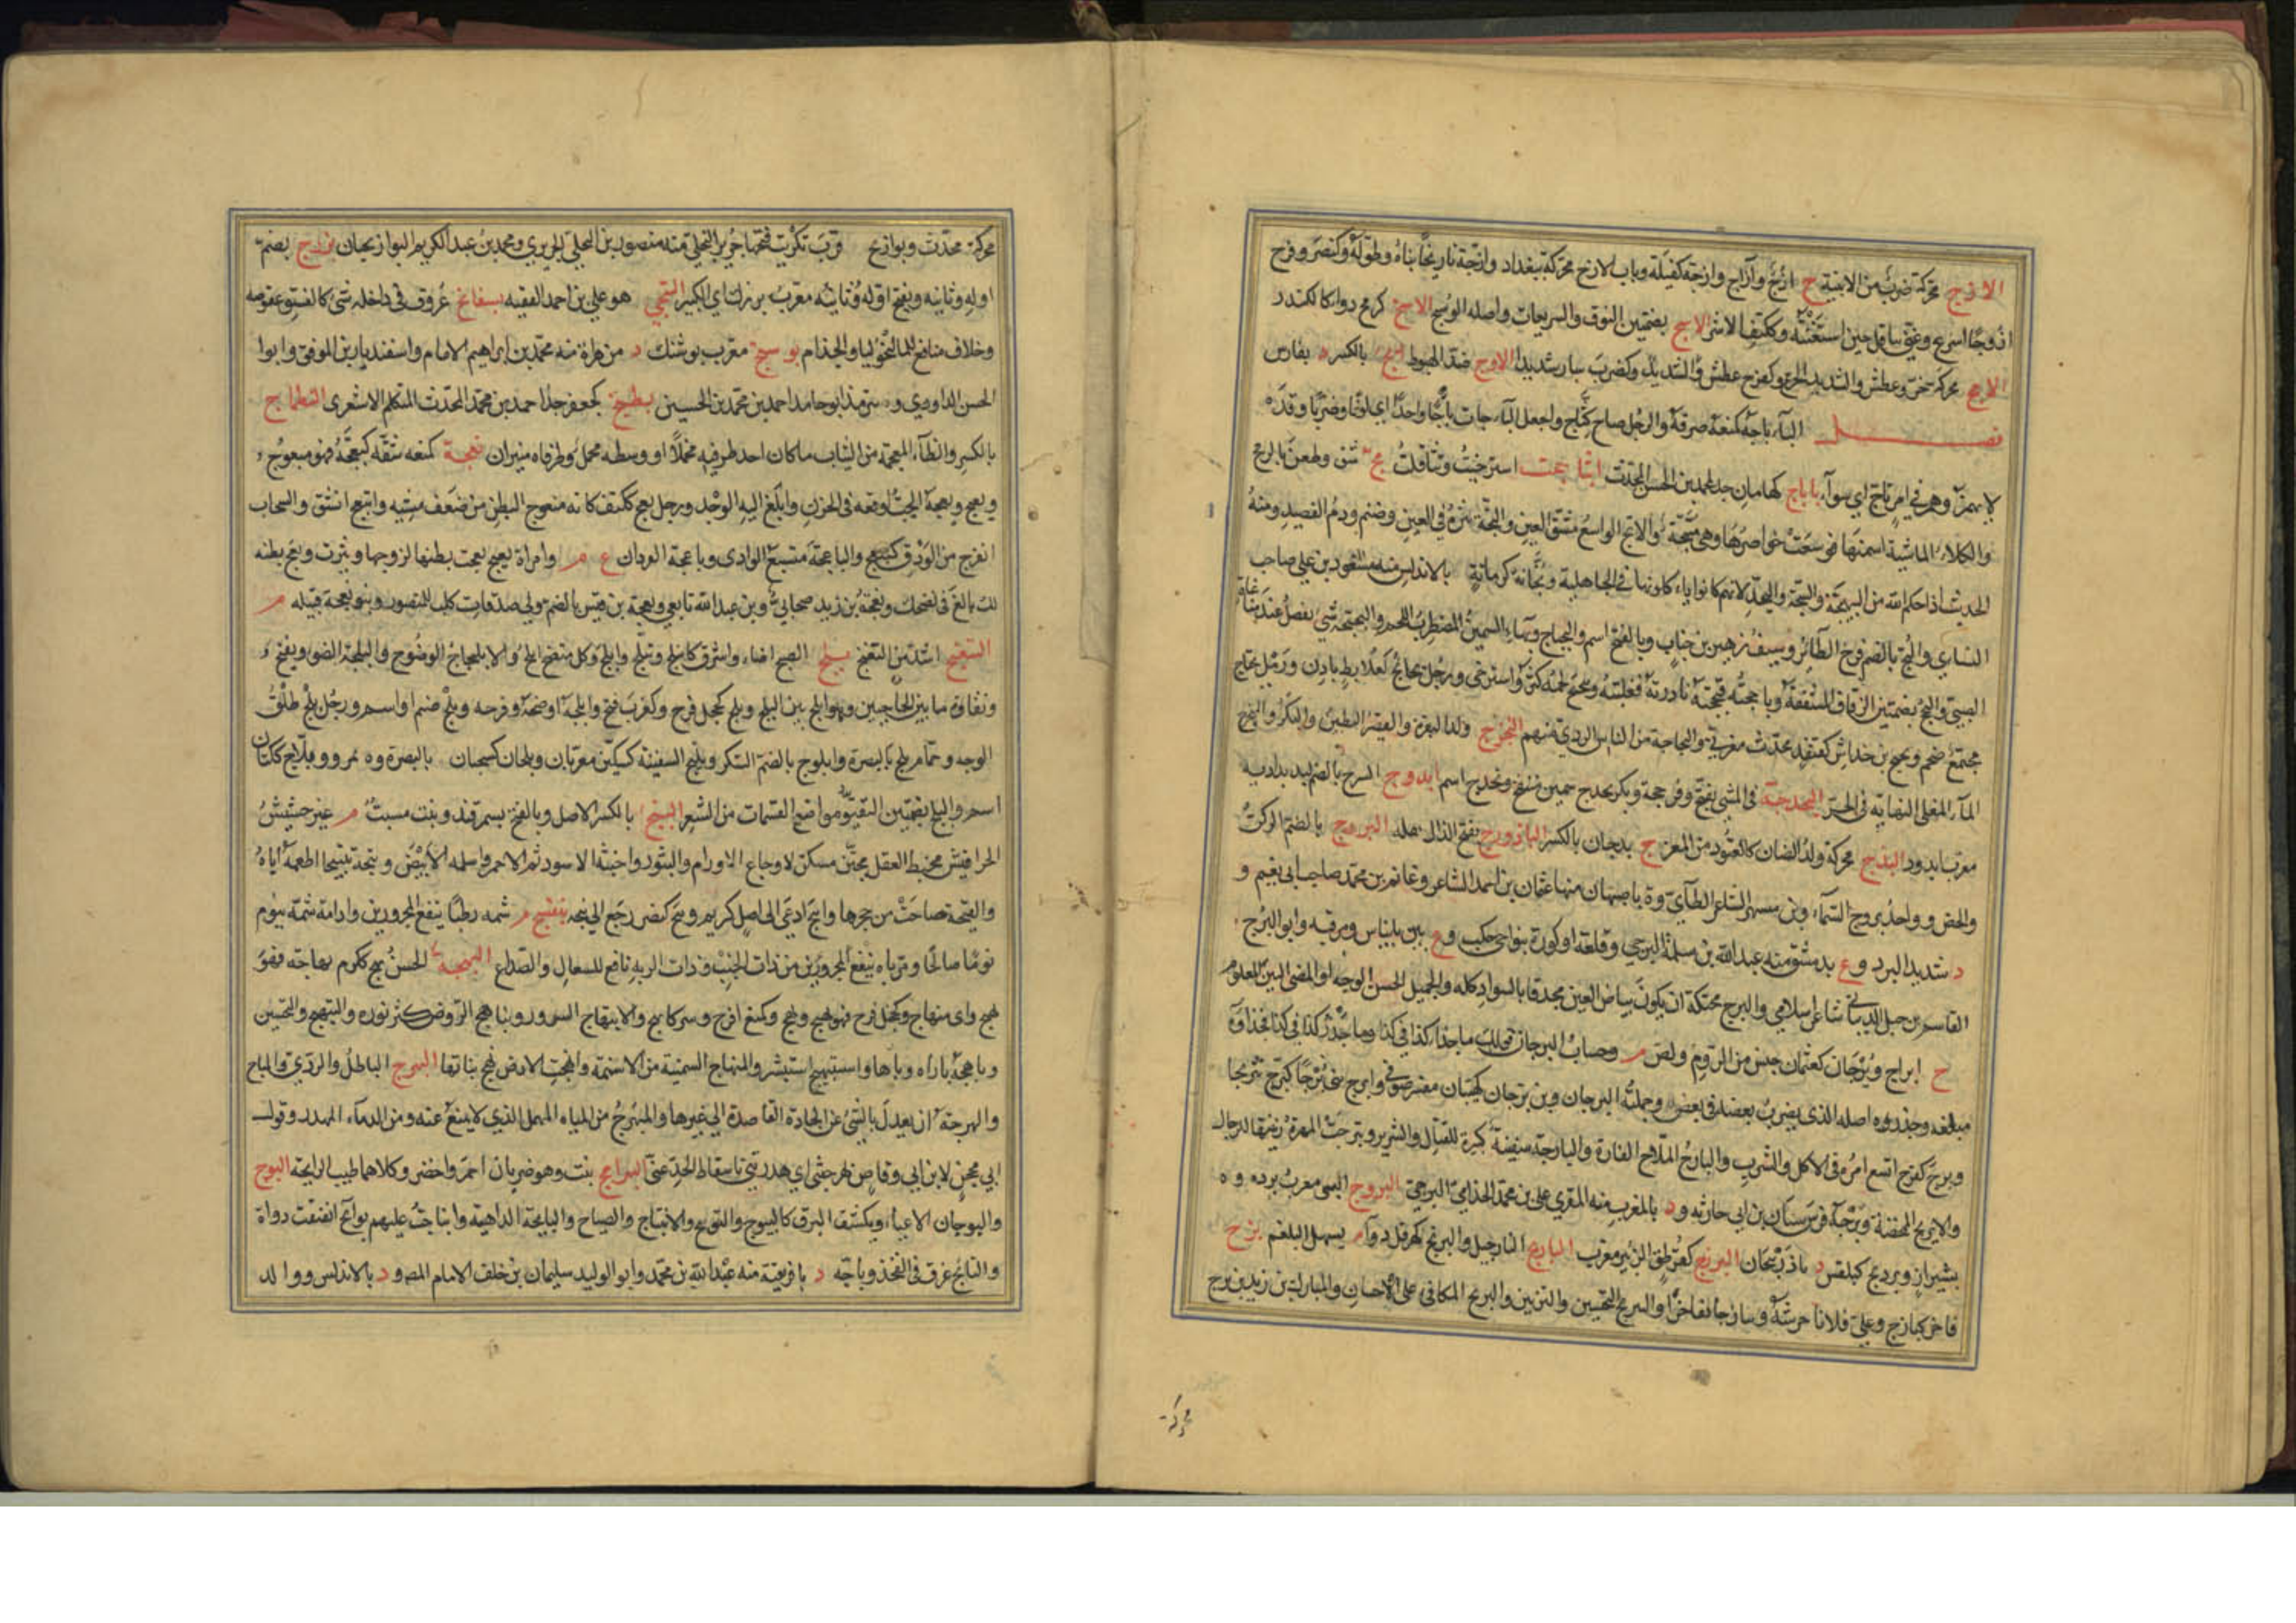 الازج محركة ضرب من الابنية ج ازج وآزاج وازجة كفيلة وباب الازج محركة ببغداد وازجه تازيجا بناه وطوله وكنصر وفرح
ازوجا اسرع وعنى تثاقل حين استغثته وككتف الاشر الاسج بضمتين النوق السريعات واصله الوسج الامج
الامج محركة حر وعطش والشديد الحر وكفرح عطش وكضرب سار شديدا الاوج ضد الهبوط بالكسر د بفارس
فصل الباء باجه كمنعه صرفه والرجل صاح كبأج واجعل الباجات باجا واحدا اي لونا وضربا وقد
لا يهمز وهم في امر باج اي سواء باباج كهامان جد لمحمد بن الحسن المحدث ابثاججت استرخيت وتثاقلت بج شق وطعن بالرمح
والكلاء الماشية اسمنها فوسعت خواصرها وهي مبجة والابج الواسع مشق العين والبجة بثرة في العين وصنم ودم الفصيد ومنه
الحديث اراحكم الله من الجبهة والسجة والبجة لانهم كانوا ياكلونها في الجاهلية وبجانة كرمانة بالاندلس منه مسعود بن علي صاحب
النسائي والبج بالضم فرخ الطائر وسيف زهير بن جناب وبالفتح اسم والبجباج وبهاء السمين المضطرب اللحم والبجبجة شيء يفعل عند مناغاة
الصبي والبجج بضمتين الزقاق المشققة وباججته فبججته بادرته فغلبته وتبجبج لحمه كثر واسترخى ورجل بجابج كعلابط بادن ورمل بجباج
مجتمع ضخم وبجج بن خداش كقنفذ محدث مغربي والبجباجة من الناس الردي منهم البحزج ولد البقرة والقصير البطين والبكر والمبحزج
الماء المغلى النهاية في الحر البخدجة في المشي تفتح وفرجحة وبكر بخدج سمين منتفخ وبخدج اسم ابدوج السرج بالضم لبد بداديه
معرب ابدود البذج محركة ولد الضان كالعتود من المعز ج بذجان بالكسر الباذروج بفتح الذال بقلة البرج بالضم الركن
والحصن وواحد بروج السماء وبن مسهر الشاعر الطائي وة باصبهان منها عثمان بن احمد الشاعر وغانم بن محمد صاحب ابي نعيم و
د شديد البرد وع بدمشق منه عبد الله بن سلمة البرجي وقلعة او كورة بنواحي حلب وع بين بانياس ومرقية وابو البرج
القاسم بن جبل الذبياني شاعر اسلامي والبرج محركة ان يكون بياض العين محدقا بالسواد كله والجميل الحسن الوجه او المضيء البين المعلوم
ج ابراج وبرجان كعثمان جنس من الروم ولص م وحساب البرجان قولك ما جذاء كذا في كذا وما جذر كذا في كذا فجذاؤه
مبلغه وجذره اصله الذي يضرب بعضه في بعض وجملته البرجان وبن برجان كهيبان مفسر صوفي وابرج بنى برجا كبرج تبريجا
وبرج كفرح اتسع امره في الاكل والشرب والبارج الملاح الفاره والبارجة سفينة كبيرة للقتال والشرير وتبرجت اظهرت زينتها للرجال
والابريج الممخضة وبرجة فرس سنان بن ابي حارثة ود بالمغرب منه المقري علي بن محمد الجذامي البرجي البردج السبي معرب برده وة
بشيراز وبرديج كبلقيس د باذربيجان البرزج كقرطق الزئبر معرب البارنج النارجيل والبرنج كهرقل دواء م يسهل البلغم بزج
فاخر كبازج وعلى فلانا حرشه وتبازجا تفاخرا والتبزيج التحسين والتزيين والبزيج المكافئ على الاحسان والمبارك بن زيد بن بزج
محركة
محركة محدث وبوازيج قرب تكريت فتحها جرير البجلي منه منصور بن البجلي الجريري ومحمد بن عبد الكريم البوازيجيان بزرج بضم
اوله وثانيه وبفتح اوله وثانيه معرب بزرك اي الكبير البستجي هو علي بن احمد الفقيه بسفانج عروق في داخله شيء كالفستق عفوصه
وحلاوة نافع للمالنخوليا والجذام بوسنج معرب بوشنك د من هراة منه محمد بن ابراهيم الامام واسفنديار بن الموفق وابو
الحسن الداودي وة بترمذ ابو حامد احمد بن محمد بن الحسين بطنج كجعفر جد احمد بن محمد المحدث المتكلم الاشعري البظماج
بالكسر والظاء المعجمة من الثياب ما كان احد طرفيه مخملا او وسطه مخمل وطرفاه منيران بعجه كمنعه شقه كبعجه فهو مبعوج
وبعيج وبعجه الحب اوقعه في الحزن وابلغ اليه الوجد ورجل بعج ككتف كانه مبعوج البطن من ضعف مشيه وانبعج انشق والسحاب
انفرج من الودق كتبعج والباعجة متسع الوادي وباعجة القردان ع م وامراة بعيج بعجت بطنها لزوجها ونثرت وبعج بطنه
لك بالغ في نصحك وبعجة بن زيد صحابي وبن عبد الله تابعي وبعجة بن قيس بالضم ولي صدقات كلب للمنصور وبنو بعجة قبيلة م
التبغنج اشد من التغنج بلج الصبح اضاء واشرق كانبلج وتبلج وابلج وكل متضح ابلج والابلاجاج الوضوح والبلجة الضوء ويفتح و
ونقاوة ما بين الحاجبين وهو ابلج بين البلج وبلج كخجل فرح وكضرب فتح وابلجه اوضحه وفرحه وبلج صنم او اسم ورجل بلج طلق
الوجه وحمام بلج بالبصرة وابلوج بالضم السكر وبليج السفينة كسكين معربان وبلجان كسحبان بالبصرة وة بمرو وبلاج ككتان
اسم والبلج بضمتين النقيو مواضع القسمات من الشعر البنج بالكسر الاصل وبالفتح ة بسمرقند ونبت مسبت م غير حشيش
الحرافيش مخبط للعقل مجنن مسكن لاوجاع الاورام والبثور واخبثه الاسود ثم الاحمر واسلمه الابيض وبنجه تبنيجا اطعمه اياه
والقبجة صاحت من جحرها وابنج ادعى الى اصل كريم وبنج كنصر رجع الى بنجه بنفسج م شمه رطبا ينفع المحرورين وادامة شمه ينوم
نوما صالحا ومرباه ينفع المحرورين من ذات الجنب وذات الرية نافع للسعال والصداع البهجة الحسن بهج ككرم بهاجة فهو
بهيج وهي مبهاج وكخجل فرح فهو بهيج وبهج وكمنع افرح وسر كابهج والابتهاج السرور وتباهج الروض كثر نوره والتبهيج والتحسين
وباهجه باراه وباهاه واستبهج استبشر والمبهاج السمينة من الاسنمة وابهجت الارض بهج نباتها البهرج الباطل والردي والمباح
والبهرجة ان يعدل بالشيء عن الجادة القاصدة الى غيرها والمبهرج من المياه المهمل الذي لا يمنع عنه ومن الدماء المهدر وقول
ابي محجن لابن ابي وقاص بهرجتني اي هدرتني باسقاط الحد عني البهرامج نبت وهو ضربان احمر واخضر وكلاهما طيب الرائحة البوج
والبوجان الاعياء وبكشف البرق كالتبوج والتبويج والابتياج والصياح والبائجة الداهية وانباجت عليهم بوائج انفتقت دواه
والبائج عرق في الفخذ وباجة د بافريقية منه عبد الله بن محمد وابو الوليد سليمان بن خلف الامام المص ود بالاندلس ووالد